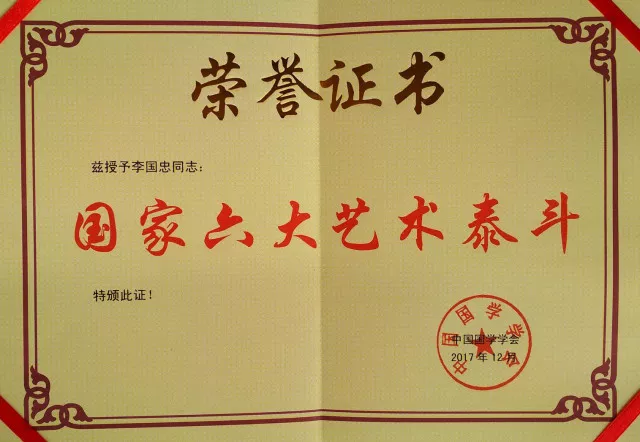 荣誉证书
兹授予李国忠同志：
国家六大艺术泰斗
特颁此证！
中国国学学会
中国国学学会
2017年12月